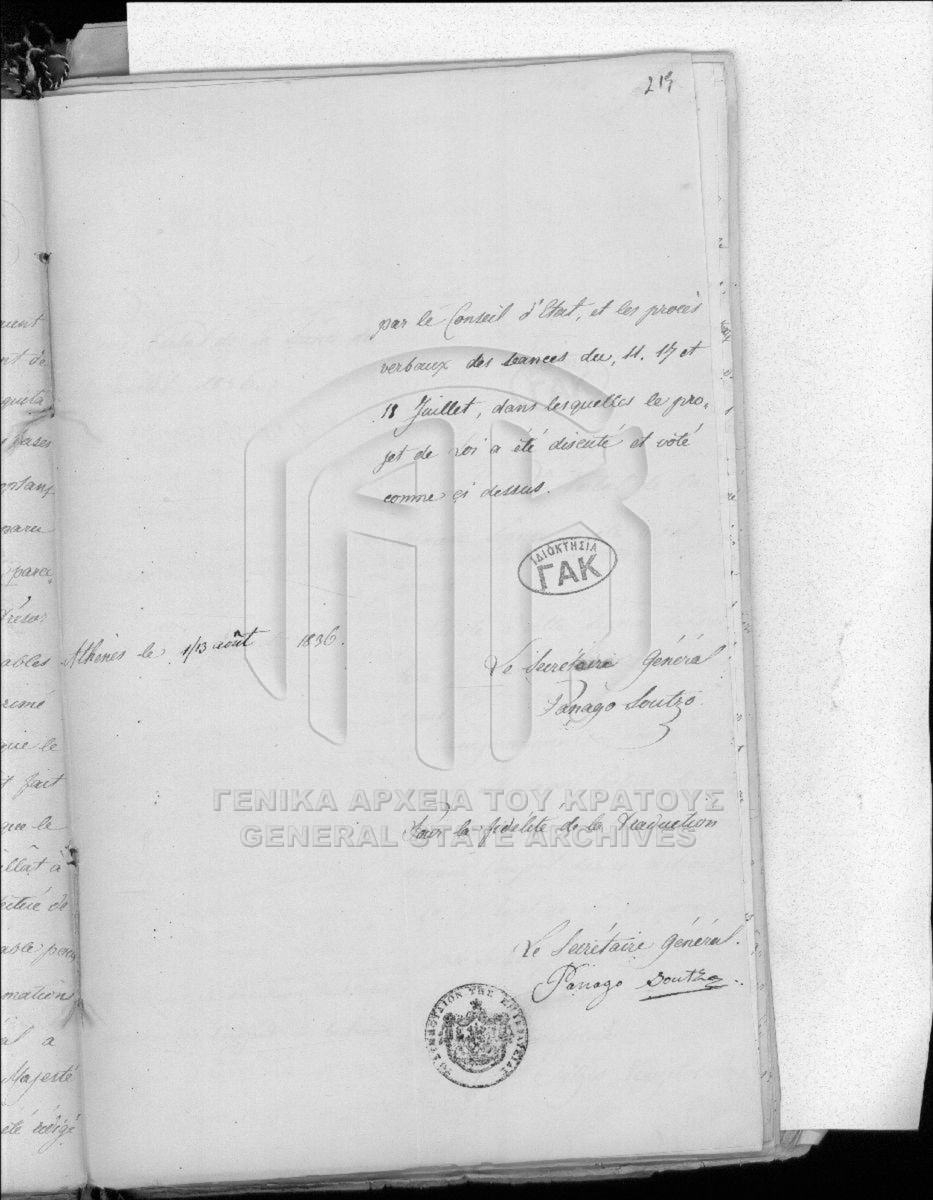 219
par le Conseil d'Etat, et les procès
verbaux des séances du, 11. 17 et
18 Juillet, dans lesquelles le pro,
jet de Loi a été discuté et voté
comme çi dessus.
ΙΔΙΟΚΤΗΣΙΑ
ΓΑΚ
Athènes le 1/13 août 1836.
Le Secrétaire Général
Panago Soutzo.
ΓΕΝΙΚΑ ΑΡΧΕΙΑ ΤΟΥ ΚΡΑΤΟΥΣ
GENERAL STATE ARCHIVES
Pour la fidelité de la Traduction
Le Secrétaire Général.
Panago Soutzo.
uent
nt de
bases
paru
ables
rimé
que le
t fait
que le
able pour
mation
al a
Majesté
été rédigé